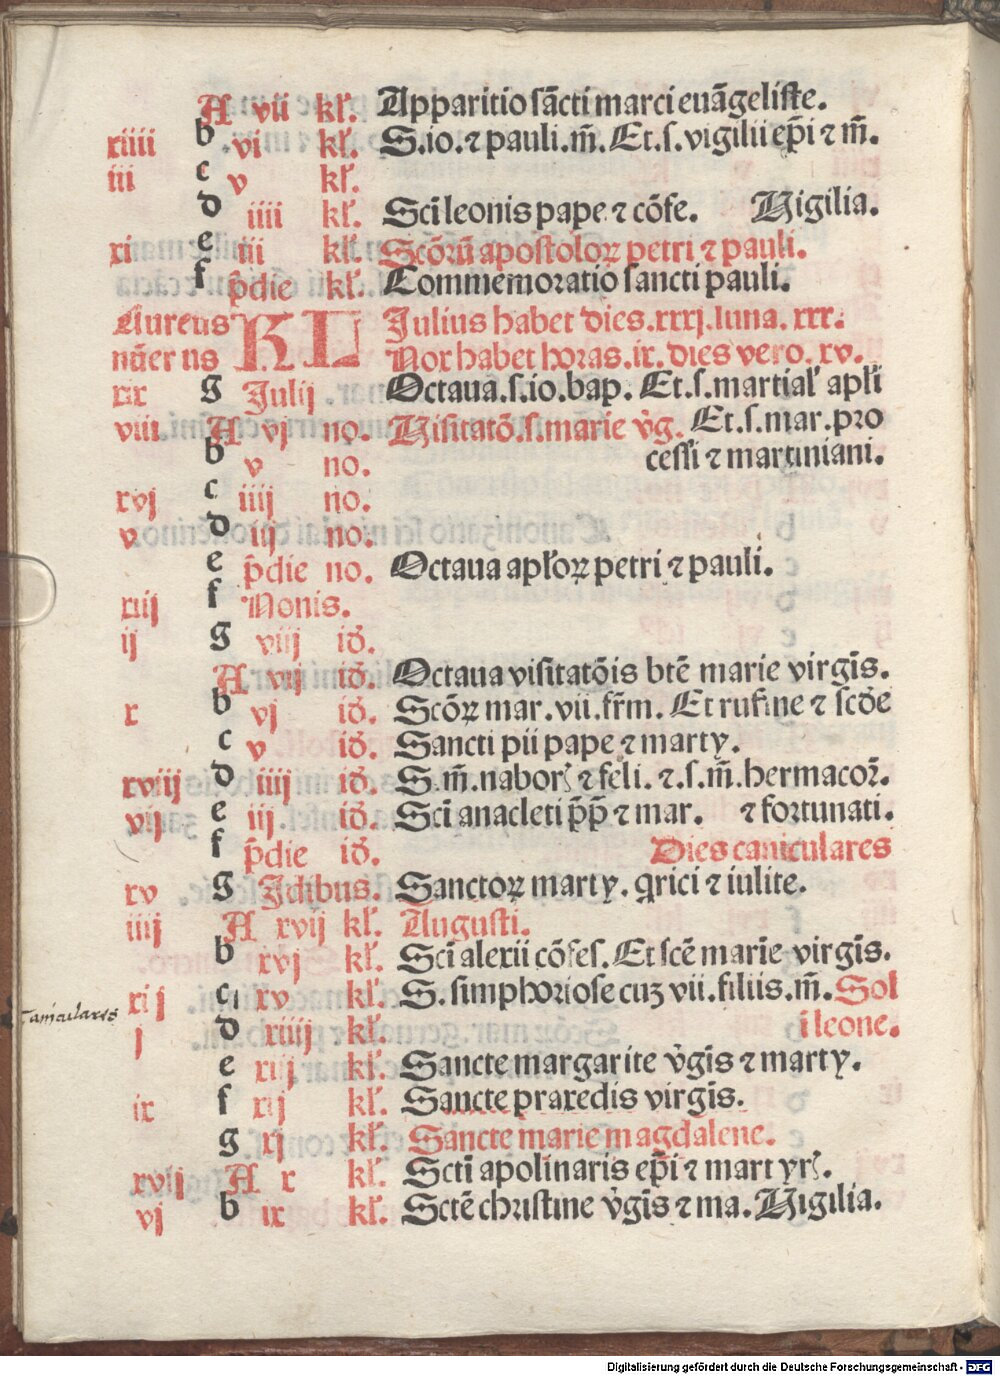 A vii kł. Apparitio sācti marci euāgeliste.
xiiii b vi kł. S.io.⁊ pauli.m̄. Et.s.vigilii ep̄i ⁊ m̄.
iii c v kł.
d iiii kł. Scī leonis pape ⁊ cōfe. Vigilia.
xi e iii kł. Scōꝝ apostoloꝝ petri ⁊ pauli.
f p̄die kł. Commemoratio sancti pauli.
Aureus KL Julius habet dies.xxxj.luna.xxx.
nūerus Nox habet horas.ix.dies vero.xv.
xix g Julij Octaua.s.io.bap. Et.s.martiał apłi
viii. A vj no. Visitatō.s.marie v̄g. Et.s.mar.pro
b v no. cessi ⁊ martiniani.
xvj c iiij no.
v d iij no.
e p̄die no. Octaua apłoꝝ petri ⁊ pauli.
xiij f Nonis.
ij g viij id̄.
A vij id̄. Octaua visitatōis btē marie virgīs.
x b vj id̄. Scōꝝ mar.vii.fr̄m. Et rufine ⁊ scd̄e
c v id̄. Sancti pii pape ⁊ marty.
xviij d iiij id̄. S.m̄.nabor⁊ ⁊ feli.⁊.s.m̄.hermacoꝝ.
vij e iij id̄. Scī anacleti p̄p̄ ⁊ mar. ⁊ fortunati.
f p̄die id̄. Dies caniculares
xv g Jdibus. Sanctoꝝ marty. qrici ⁊ iulite.
iiij A xvij kł. Augusti.
b xvj kł. Scī alexii cōfes. Et scē marīe virgīs.
xij c xv kł. S. simphoriose cuʒ vii.filiis.m̄. Sol
Caniculares
j d xiiij kł. ī leone.
e xiij kł. Sancte margarite v̄gīs ⁊ marty.
ix f xij kł. Sancte praxedis virgīs.
g xj kł. Sancte marie magdalene.
xvij A x kł. Sctī apolinaris ep̄i ⁊ martyr⁊.
vj b ix kł. Sctē christine v̄gīs ⁊ ma. Vigilia.
Digitalisierung gefördert durch die Deutsche Forschungsgemeinschaft - DFG